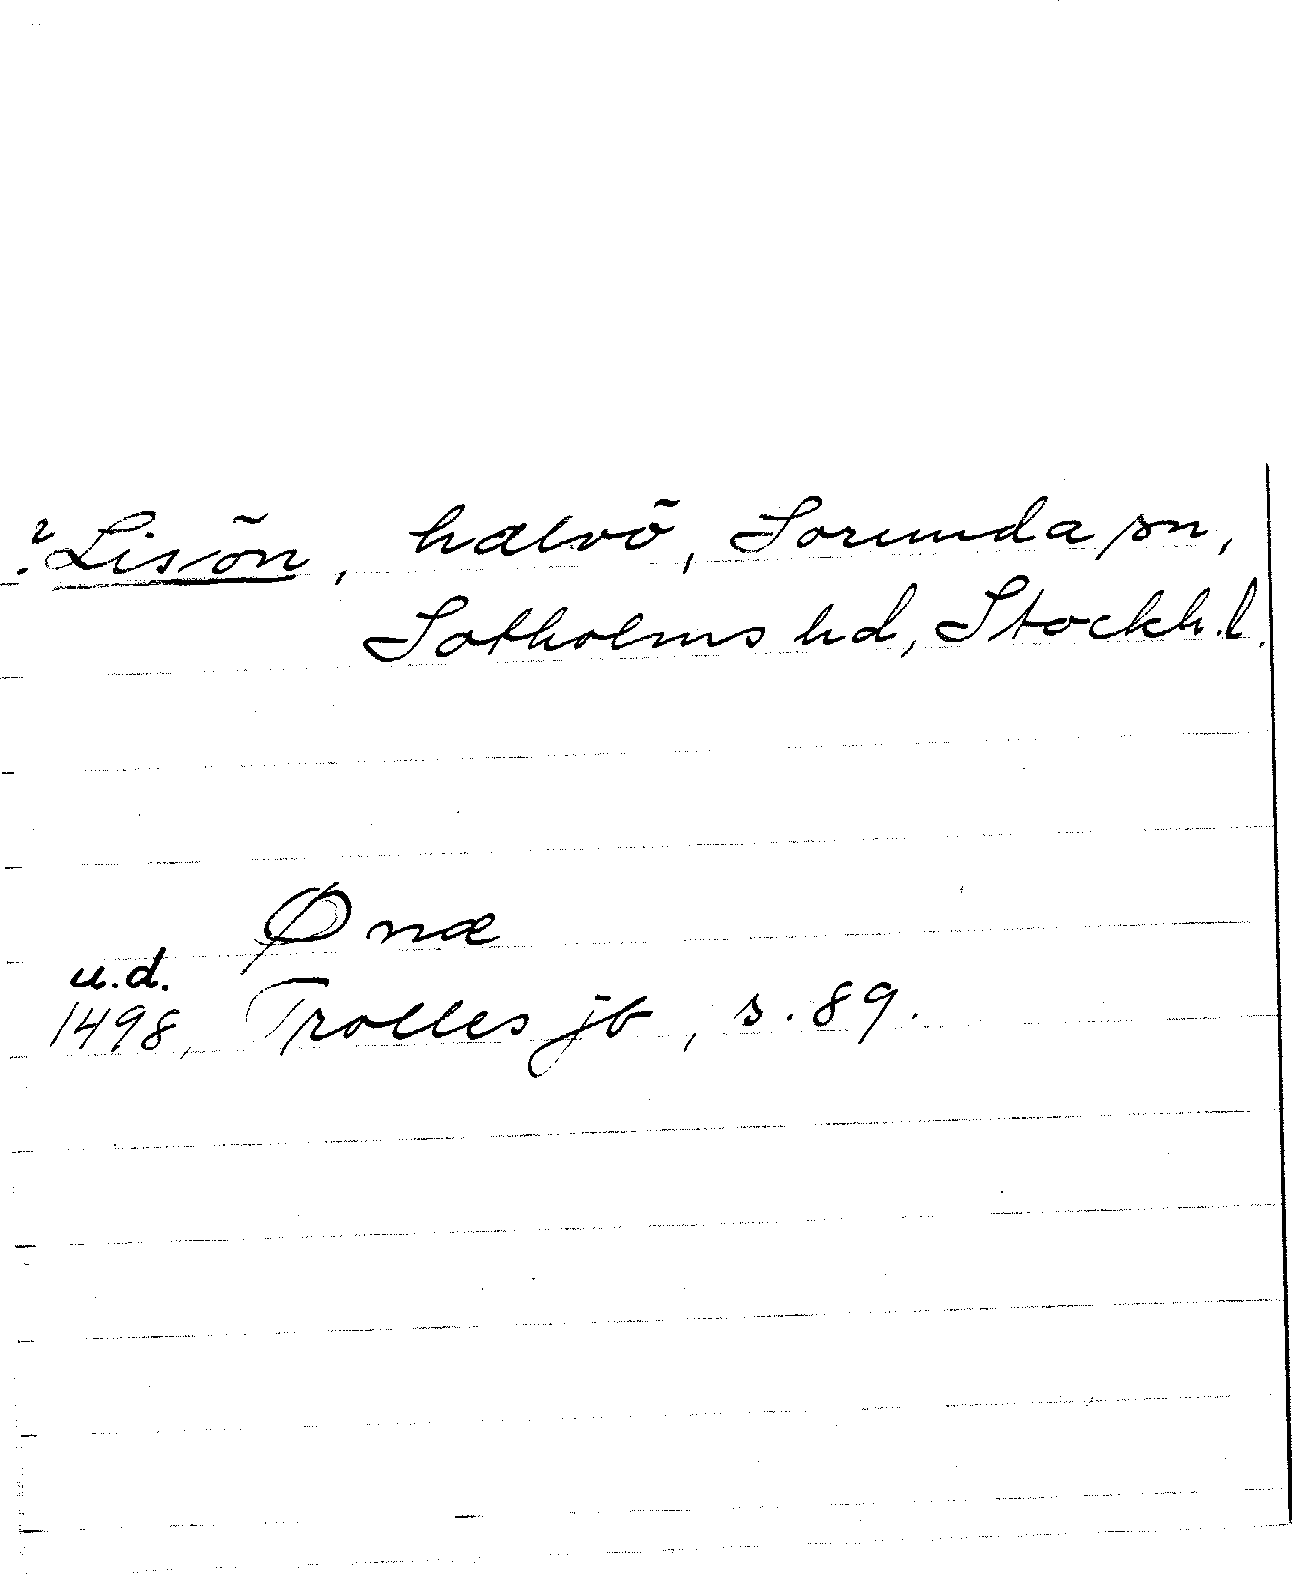 ? Lisön, halvö, Sorunda sn,
Sotholms hd, Stockh. l.
Ønæ
u.d.
1498, Trolles jb, s. 89.